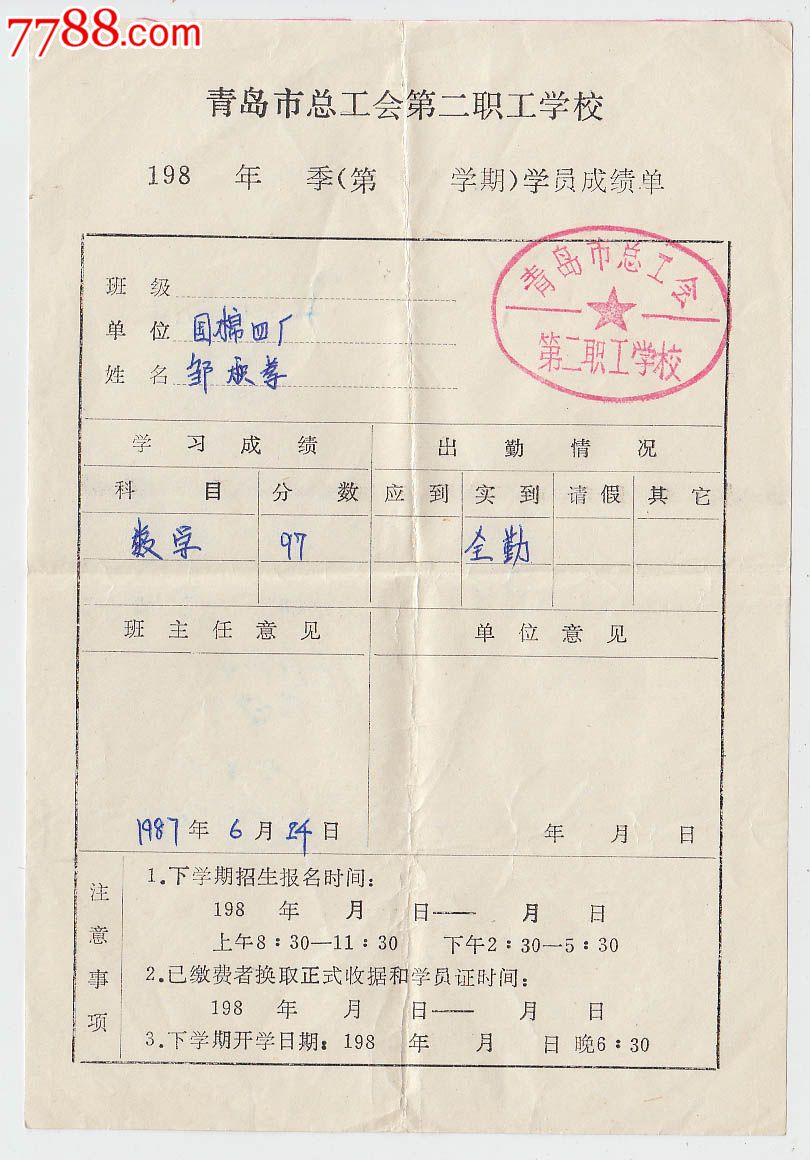 7788.com
青岛市总工会第二职工学校
198 年 季(第 学期)学员成绩单
青岛市总工会
第二职工学校
班级
单位 国棉四厂
姓名 邹
学习成绩 出勤情况
科目 分数 应到 实到 请假 其它
数学 97 全勤
班主任意见 单位意见
1987年6月24日 年 月 日
注意事项
1.下学期招生报名时间：
198 年 月 日—— 月 日
上午8：30—11：30 下午2：30—5：30
2.已缴费者换取正式收据和学员证时间：
198 年 月 日—— 月 日
3.下学期开学日期：198 年 月 日 晚6：30